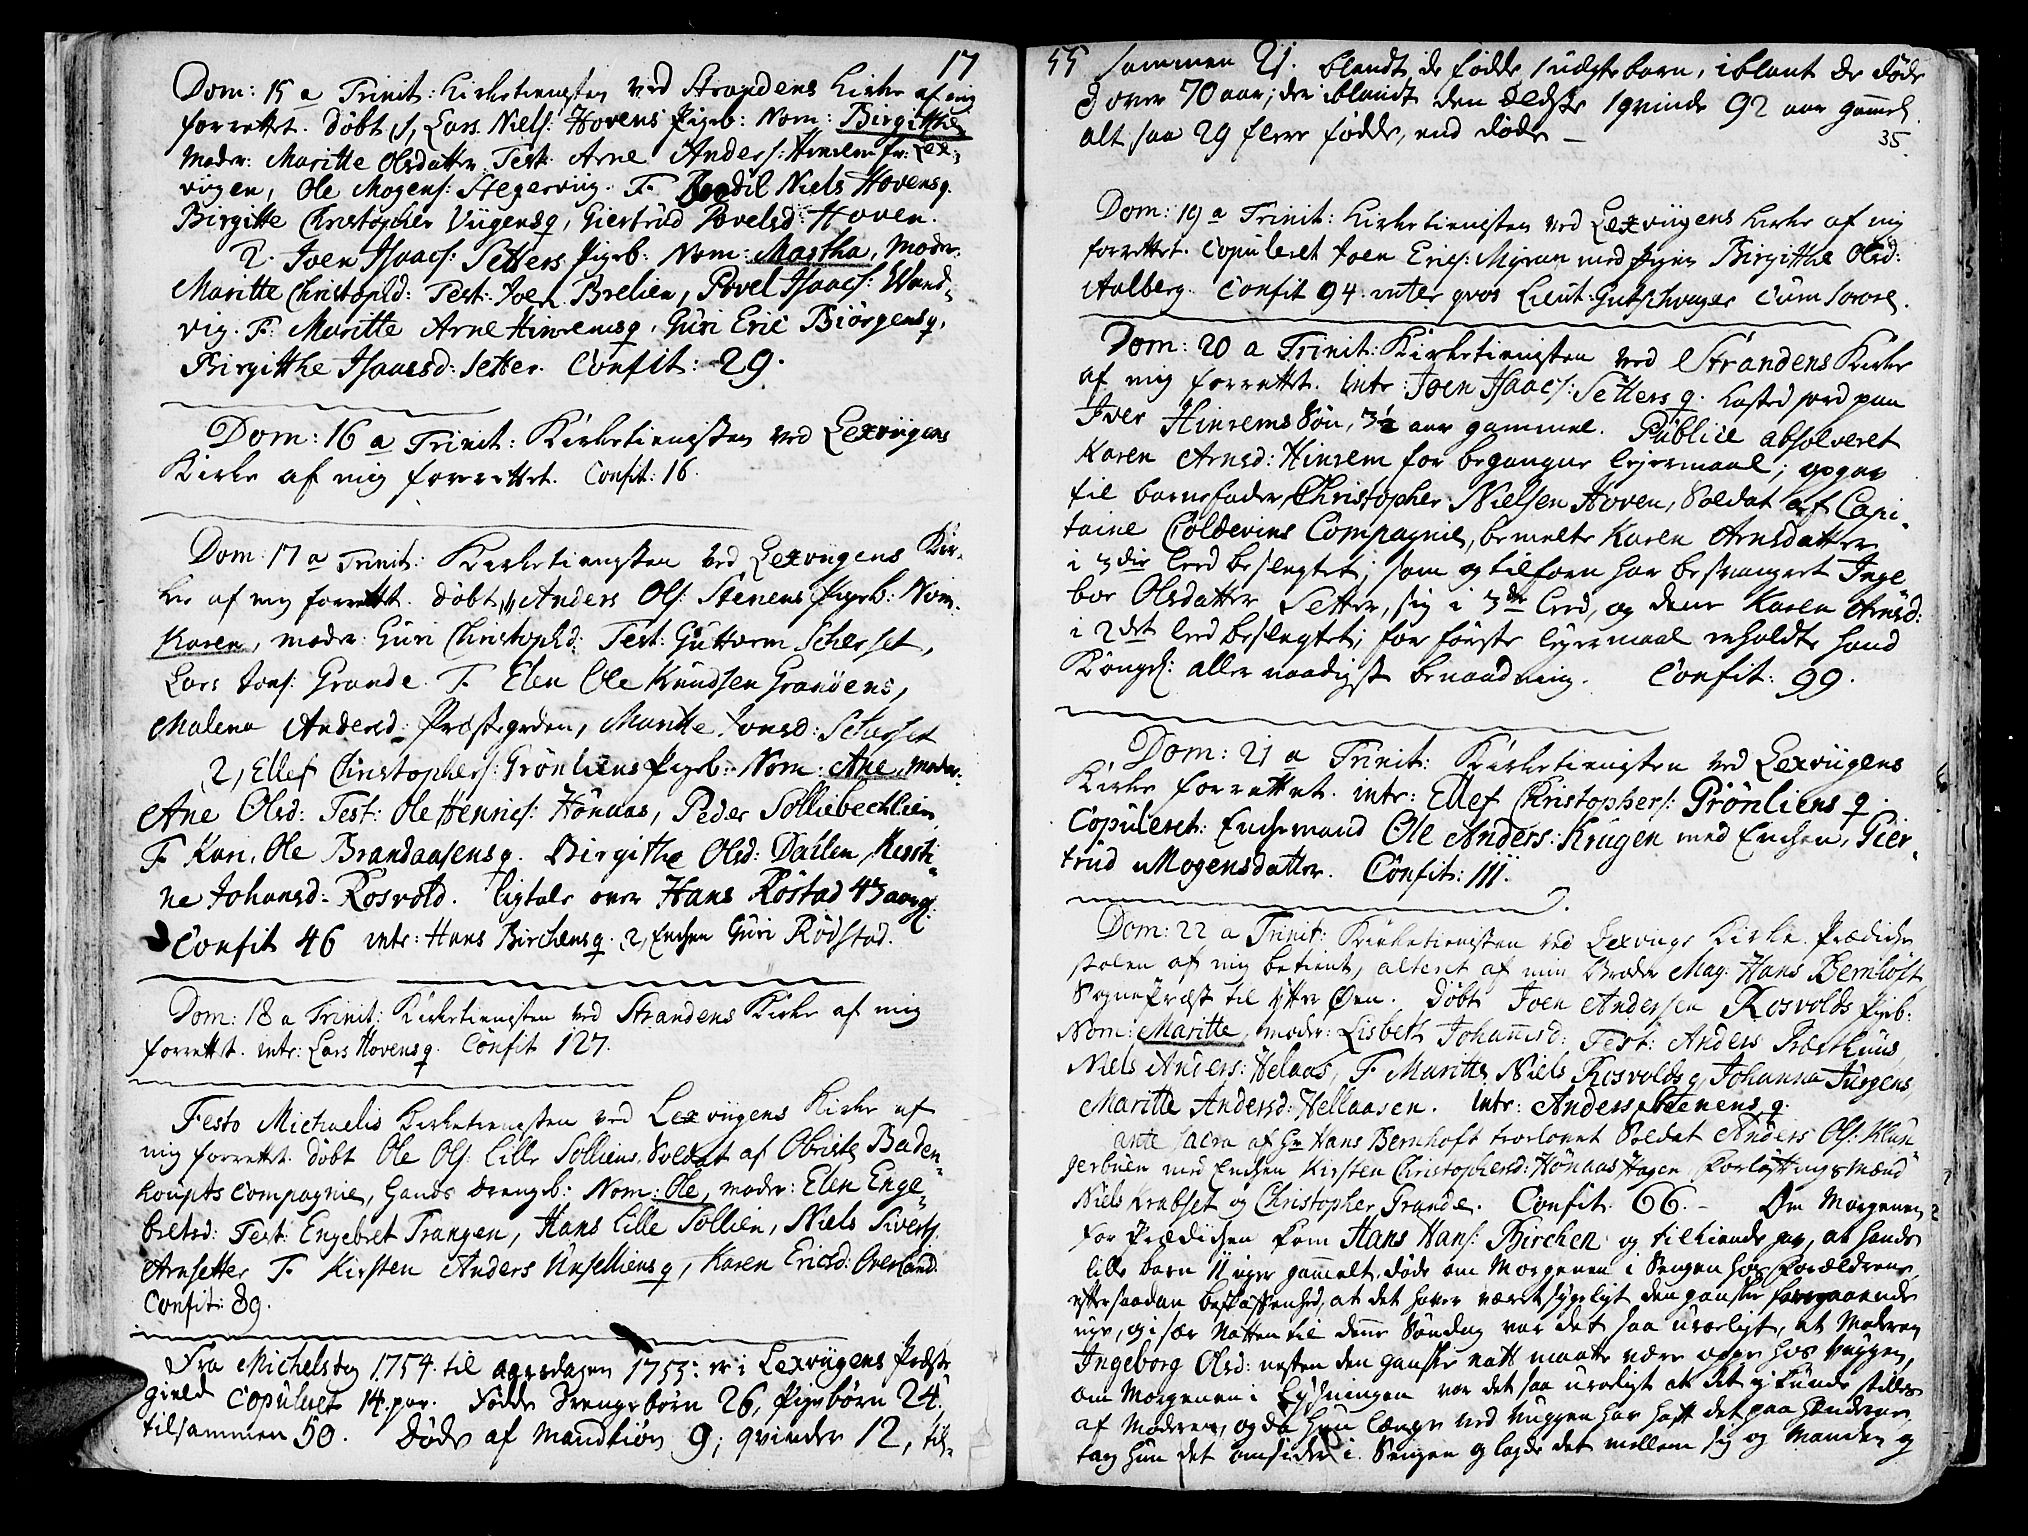 17
Dom: 15 a Trinit: Kirketienisten ved Strandens Kirke af mig
forrettet. døbt 1, Lars Niels: Hovens Pigeb: Nom: Birgitthe
Moder: Maritte Olsdatter Test: Arne Anders: Hinrem fr: Lex:
viigen, Ole Mogens: Stegerviig. F. Bodil Niels Hovens q.
Birgitte Christopher Viigens q, Giertrud Povelsd: Hoven.
2. Joen Isaacs: Setters Pigeb: Nom: Martha, Moder:
Maritte Christophd: Test: Joen Brelien, Povel Isaacs: Vand-
vig. F. Maritte Arne Hinrems q, Guri Eric Biörgens q,
Birgitthe Isaacsd: Setter. Confit: 29.
Dom: 16 a Trinit: Kirketienisten ved Lexviigens
Kirke af mig forrettet. Confit: 16.
Dom: 17 a Trinit: Kirketienisten ved Lexviigens Kir-
ke af mig forrettet. døbt, 1, Anders Ols: Stenens Pigeb: Nom.
Karen, moder: Guri Christophd: Test: Guttorm Scherset,
Lars Jons: Grande. F. Elen Ole Knudsen Grandens,
Malena Andersd: Præstegrden, Maritte Jonsd: Scherset
2, Ellef Christophers: Grönliens Pigeb: Nom: Ane, moder:
Ane Olsd: Test: Ole Henrics: Hönaas, Peder Solliebechlien
F Kari, Ole Brandaasens q. Birgithe Olsd: Dahlen, Kersti-
ne Johansd: Rosvold. Ligtale over Hans Röstad 43 aar g:
Confit 46 intr: Hans Birchens q. 2, Enchen Guri Rödstad.
Dom: 18 a Trinit: Kirketienisten ved Strandens Kirke af mig
forrettet. intr: Lars Hovens q. Confit 127.
Festo Michaelis Kirketienisten ved Lexviigens Kirke af
mig forrettet. døbt Ole Ols: Lille Solliens, Soldat af Obriste Baden-
houpts Compagnie, hands drengeb: Nom: Ole, moder: Elen Enge-
bretsd: Test: Engebret Trangen, Hans Lille Sollien, Niels Siverts:
Arnsetter F. Kirsten Anders Unselliens q, Karen Ericsd: Overland.
Confit: 89.
Fra Michelsdag 1754 til aarsdagen 1755: er i Lexviigens Præste
gield Copuleret 14 par. Fødde Drengebörn 26, Pigebörn 24.
tilsammen 50. Døde af Mandkiön 9; qvinder 12, til-
55 sammen 21. blandt de fødde 1 uægte barn, iblant de døde
3 over 70 aar; der iblandt den Eldste 1 qvinde 92 aar gammel.
alt saa 29 flere fødde, end døde —
35.
Dom: 19 a Trinit: Kirketienisten ved Lexviigens Kirke af mig
forrettet. Copuleret Joen Erics: Myran med Pigen Birgitthe Olsd:
Aalberg. Confit 94. inter qvos Lieut: Gutschwager cum sorore.
Dom: 20 a Trinit: Kirketienisten ved Strandens Kirke
af mig forrettet. intr: Joen Isaacs: Setters q. kasted jord paa
Iver Hinrems Søn, 3½ aar gammel. Publice absolveret
Karen Arnsd: Hinrem for begangne leyermaal; opgav
til barnefader Christopher Nielsen Hoven, Soldat af Capi-
taine Coldevins Compagnie, bemelte Karen Arnsdatter
i 3die leed beslegtet; som og tilforn har besvangret Inge
bor Olsdatter Setter, sig i 3die leed, og denne Karen Arnsd:
i 2det leed beslegtet; for første leyermaal erholdte hand
Kongel: aller naadigst benaadning. Confit: 99.
Dom: 21 a Trinit: Kirketienisten ved Lexviigens
Kirke forrettet. intr: Ellef Christophers: Grönliens q.
Copuleret: Enchemand Ole Anders: Krugen med Enchen, Gier-
trud Mogensdatter. Confit: 111.
Dom: 22 a Trinit: Kirketienisten ved Lexviigs Kirke. Prædiche
stolen af mig betient, alteret af min Broder Mag: Hans Bernhoft
SognePræst til Ytter Öen. døbt Joen Andersen Rosvolds Pigeb:
Nom: Maritte, moder: Lisbeth Johannsd: Test: Anders Præsthuus,
Niels Anders: Helaas, F. Maritte Niels Rosvolds q, Johanna Jürgens,
Maritte Andersd: Hellaasen. intr: Anders Stenens q.
ante sacra af Hr Hans Bernhoft trolovet Soldat Anders Ols: Klun
gerbuen med Enchen Kirsten Christophersd: Hönaas Hagen, Forløftningsmænd
Niels Krabset og Christopher Grande. Confit. 66. — Om Morgenen
for Prædichen kom Hans Hans: Birchen og tilkiende gav, at hands
lille barn 11 uger gammelt, døde om Morgenen i Sengen hos Forældrene
efter saadan beskaffenhed, at det haver været sygeligt den ganske foregaaende
uge, og i sær Natten til denne Søndag var det saa uroeligt, at Moderen
Ingeborg Olsd: nesten den ganske natt maatte være oppe hos Vuggen,
om Morgenen i Lysningen var det saa uroeligt at det ej kunde stilles
af Moderen, og da hun længe ved Vuggen har hafft det paa Hænderne,
tag hun det omsider i Sengen og lagde det mellem sig og Manden og